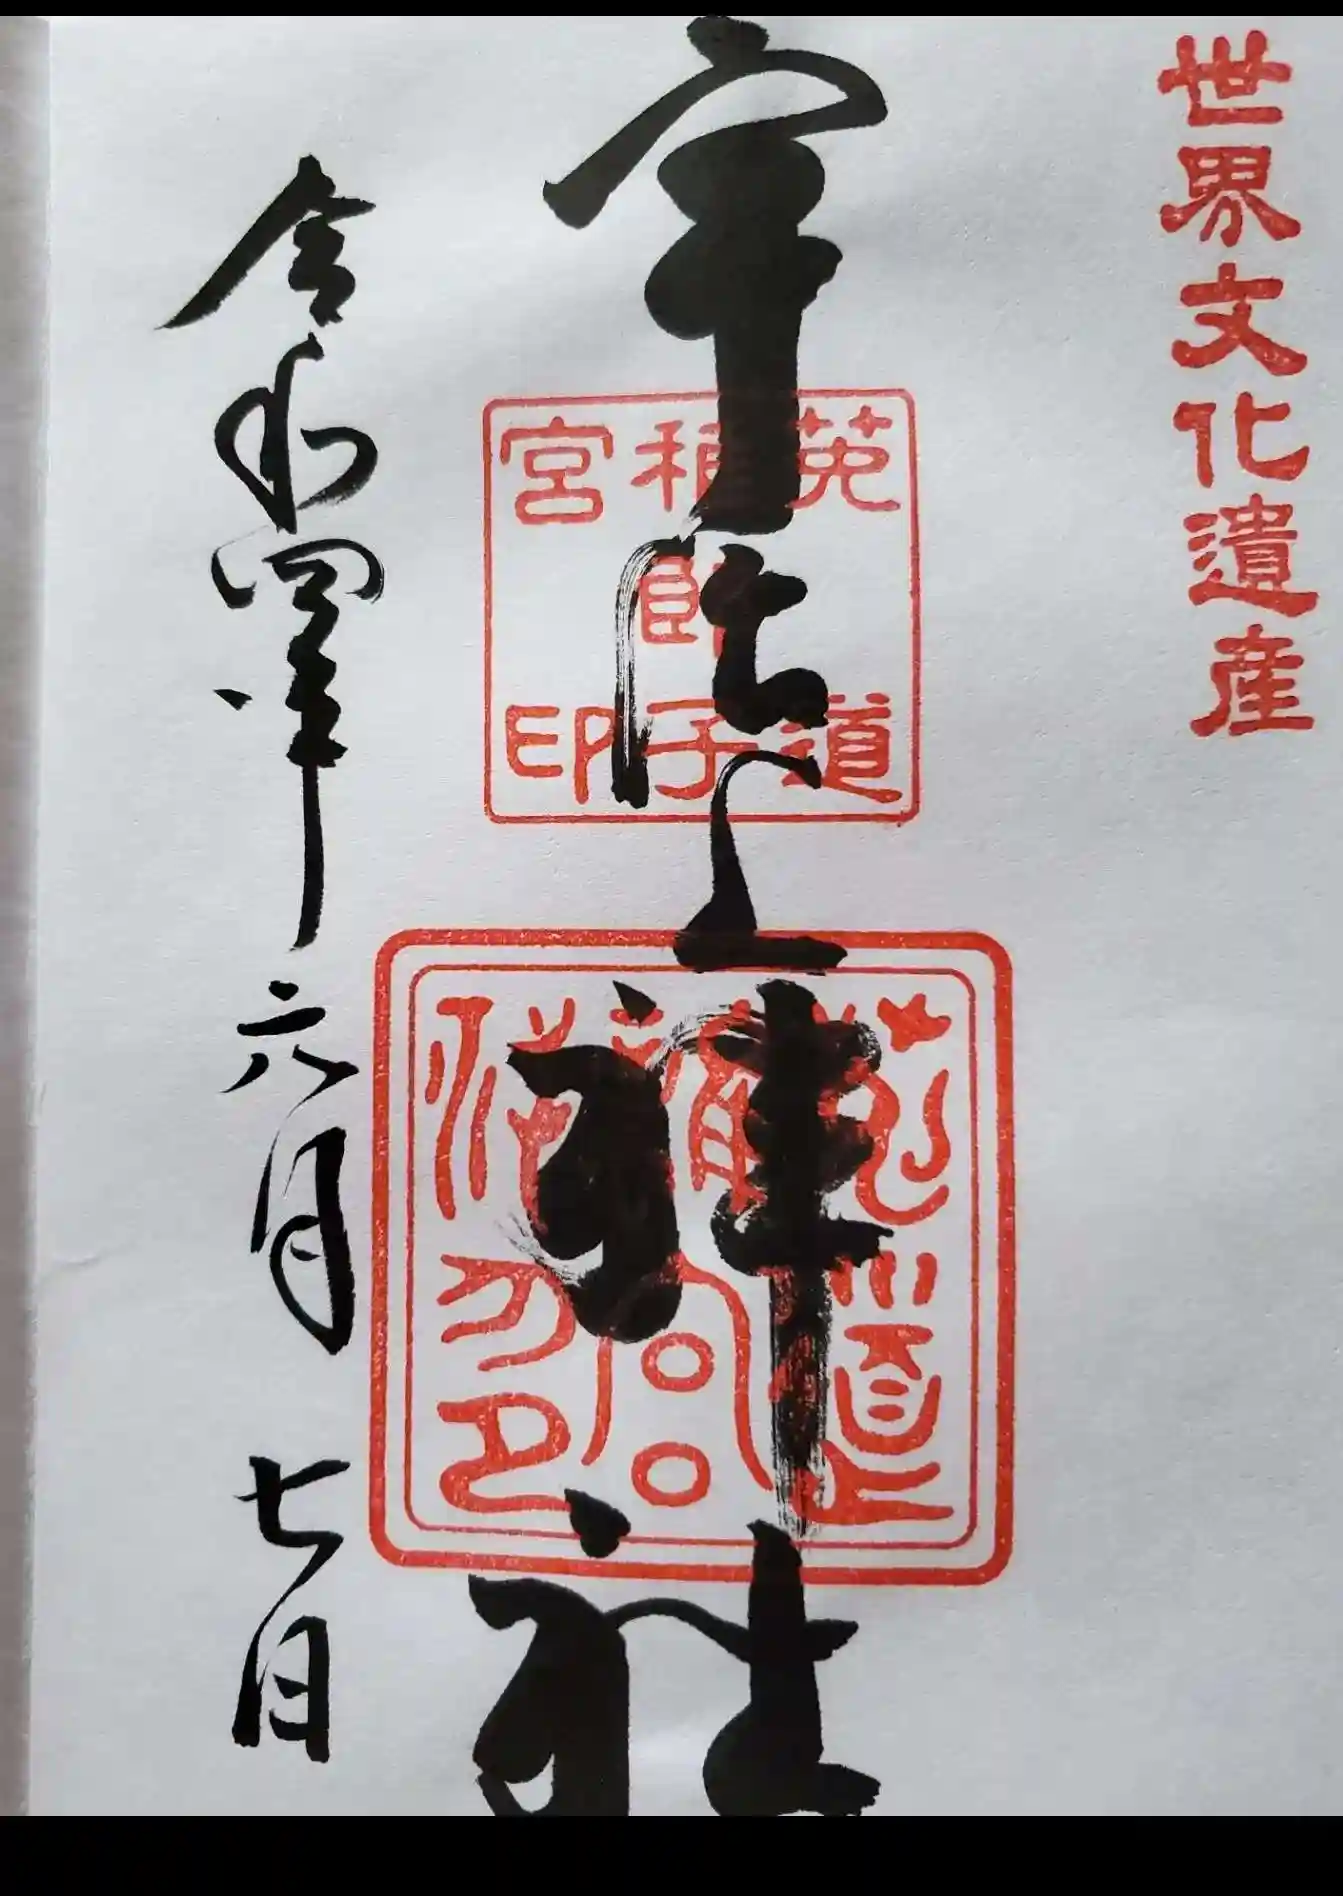 世界文化遺産
宇治上神社
菟道
稚郎子
宮印
菟道
離宮
令和四年六月七日